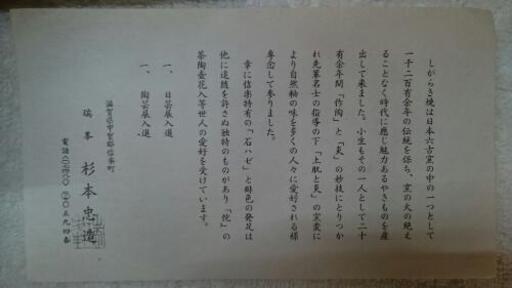 しがらき焼は日本六古窯の中の一つとして
一千二百有余年の伝統を保ち、窯の火の絶え
ることなく時代に応じ魅力あるやきものを産
出して来ました。小生もその一人として二十
有余年間「作陶」と「炎」の妙技にとりつか
れ先輩名士の指導の下「土肌と炎」の窯変に
より自然釉の味を多くの人々に愛好される様
専念して参りました。
幸に信楽特有の「石ハゼ」と緋色の発色は
他に追随を許さぬ独特のものがあり「侘」の
茶陶壺花入等世人の愛好を受けています。
一、日芸展入選
一、陶芸展入選
滋賀県甲賀郡信楽町
瑞峯 杉本忠造
電話